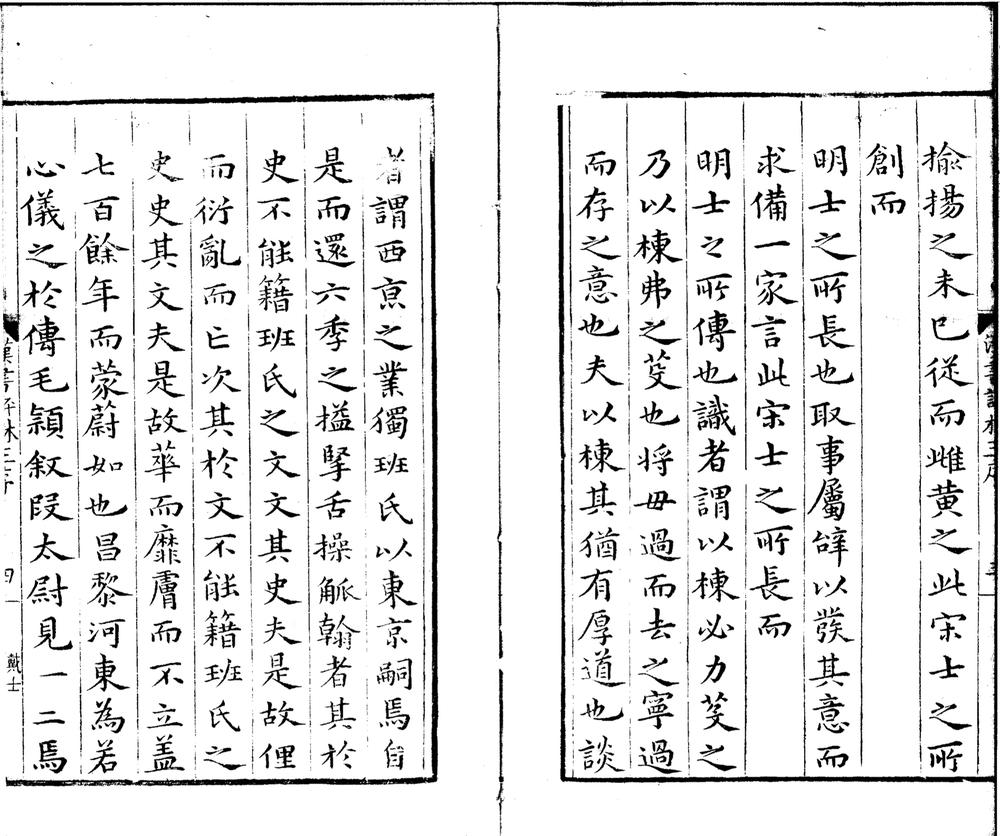 揄揚之未已從而雌黃之此宋士之所
創而
明士之所長也取事屬辭以發其意而
求備一家言此宋士之所長而
明士之所傳也識者謂以棟必力芟之
乃以棟弗之芟也將毋過而去之寧過
而存之意也夫以棟其猶有厚道也談
者謂西京之業獨班氏以東京嗣焉自
是而還六季之搤掔舌操觚翰者其於
史不能籍班氏之文文其史夫是故俚
而衍亂而亡次其於文不能籍班氏之
史史其文夫是故華而靡膚而不立盖
七百餘年而蒙蔚如也昌黎河東為若
心儀之於傳毛頴叙段太尉見一二焉
四
戴士